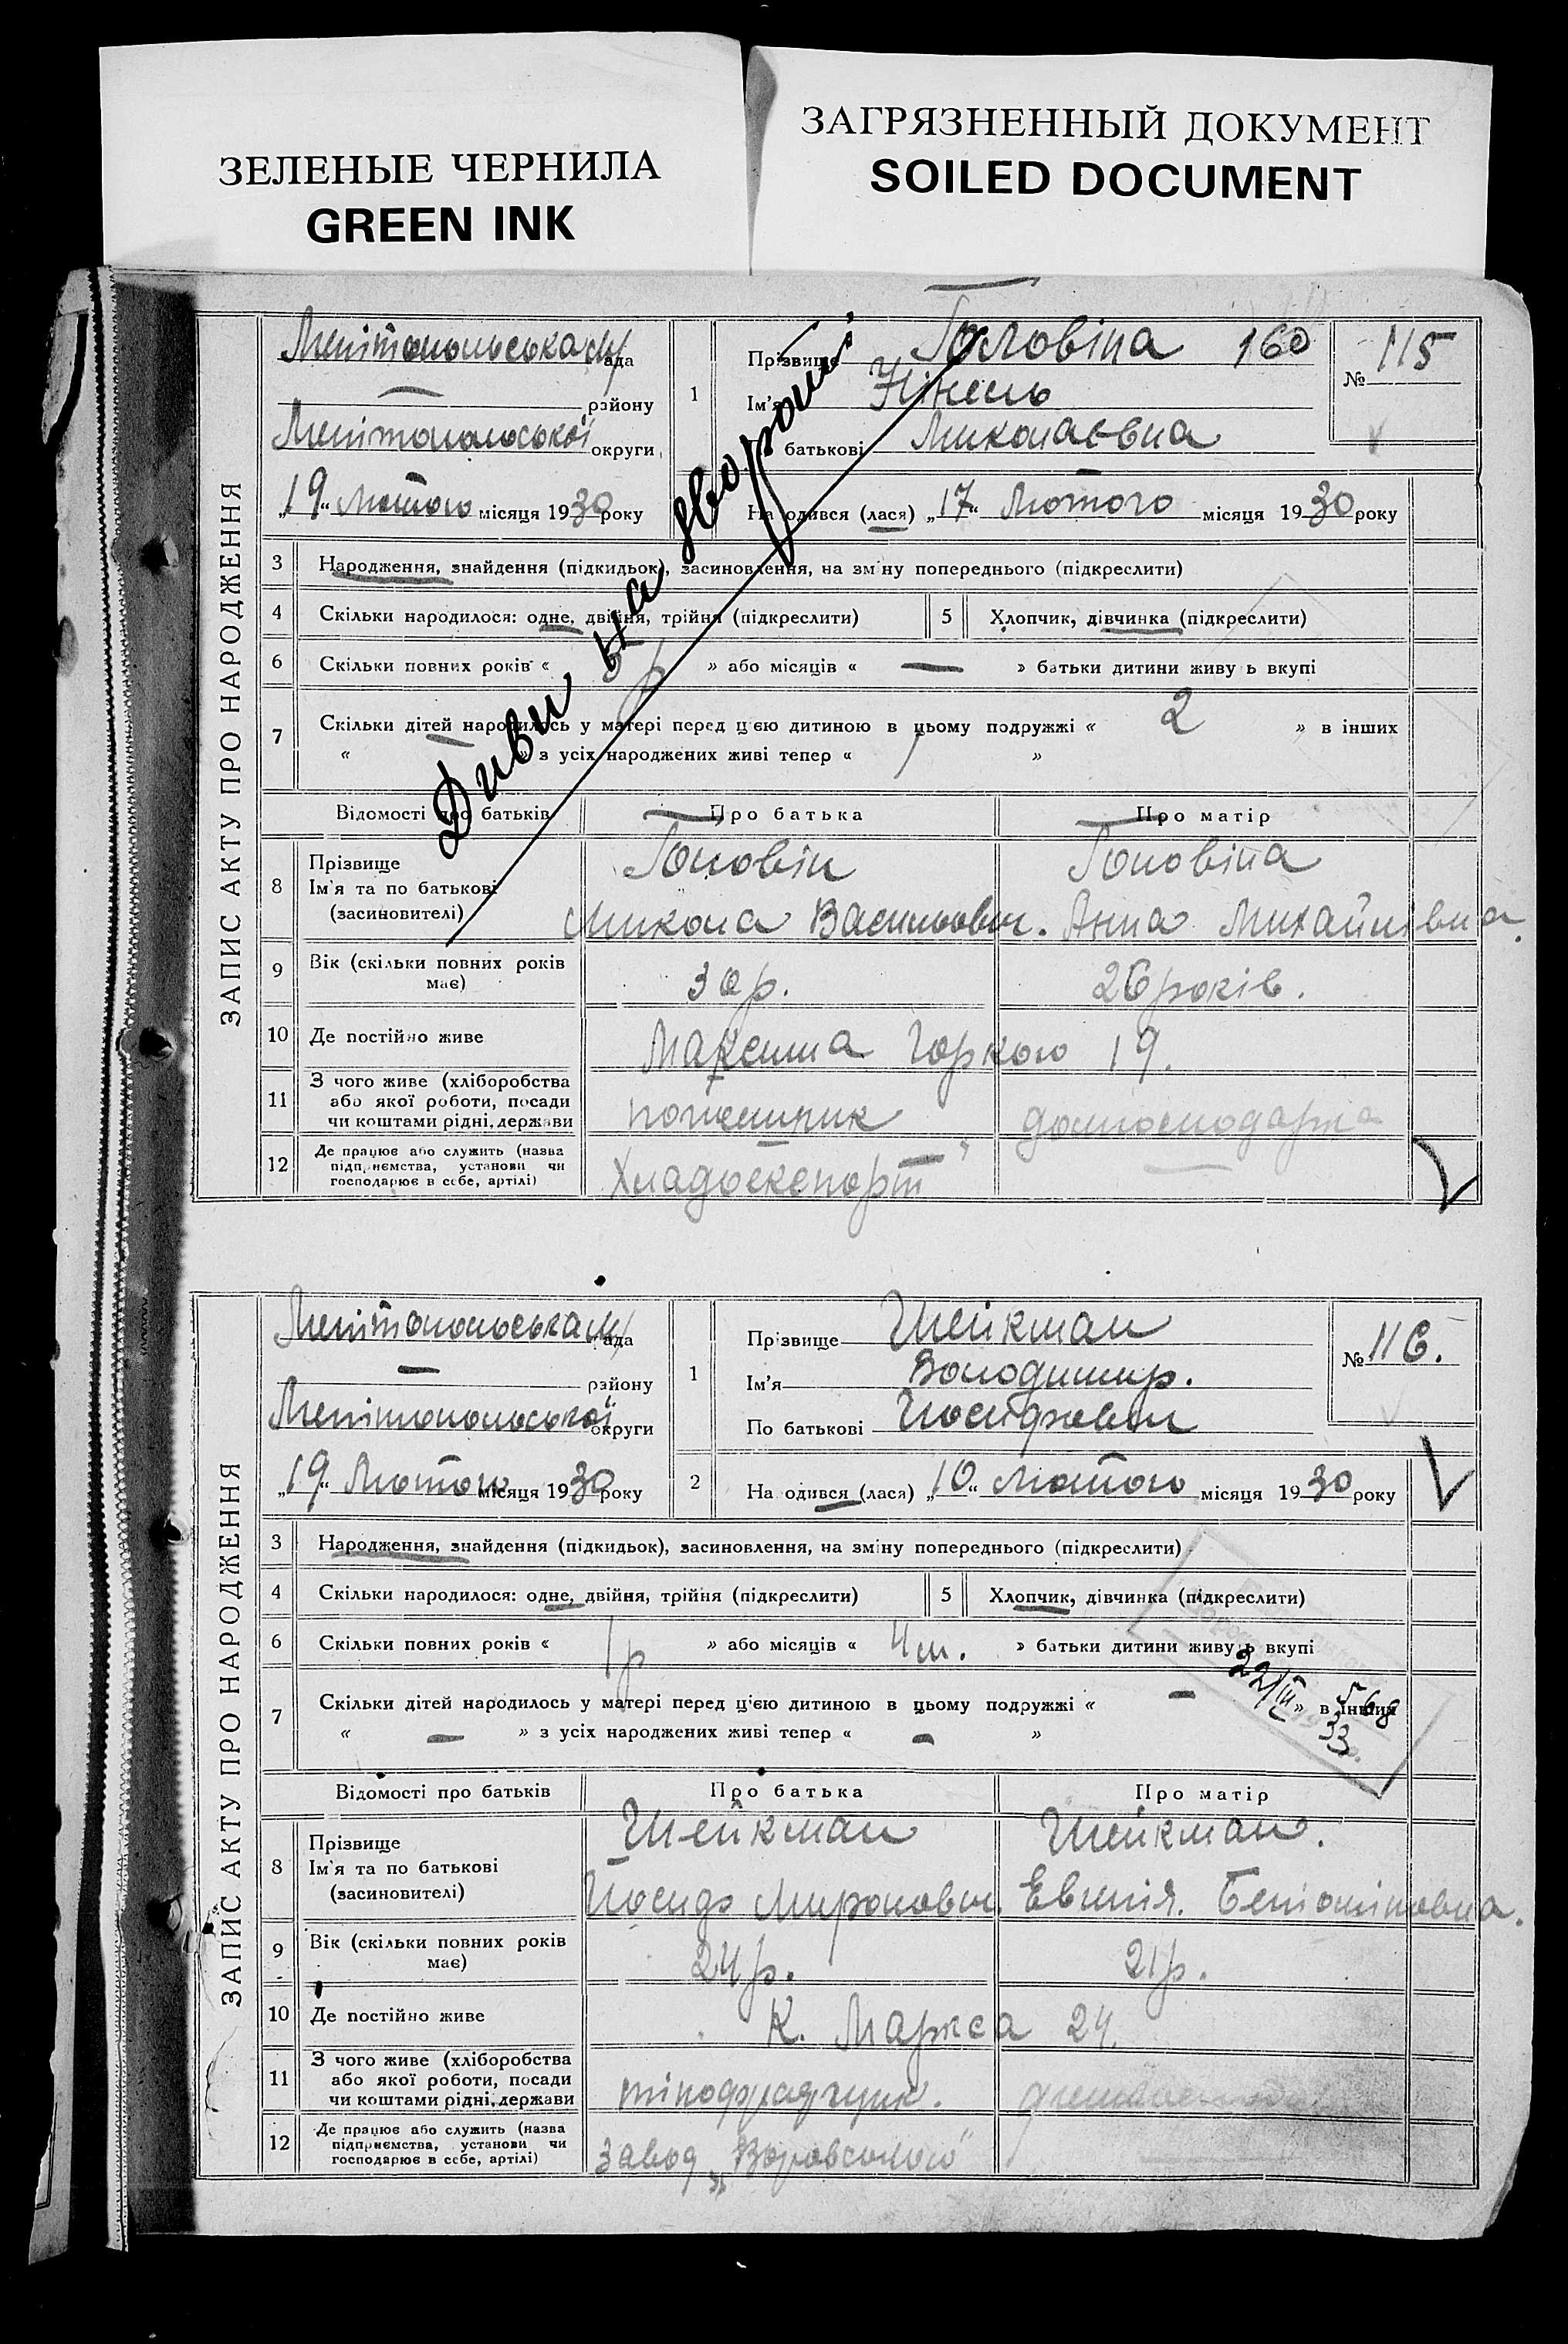 ЗЕЛЕНЫЕ ЧЕРНИЛА
GREEN INK
ЗАГРЯЗНЕННЫЙ ДОКУМЕНТ
SOILED DOCUMENT
ЗАПИС АКТУ ПРО НАРОДЖЕННЯ
Мелітопольська м/рада
— району
Мелітопольської округи
„19“ Лютого місяця 1930 року
1 Прізвище Головіна 160
Ім'я Нінель
батькові Миколаєвна
№ 115
На одився (лася) „17“ Лютого місяця 1930 року
Диви на звороті
3 Народження, знайдення (підкидьок), засиновлення, на зміну попереднього (підкреслити)
4 Скільки народилося: одне, двійня, трійня (підкреслити) 5 Хлопчик, дівчинка (підкреслити)
6 Скільки повних років « 5 р » або місяців « — » батьки дитини живу ь вкупі
7 Скільки дітей народилось у матері перед цією дитиною в цьому подружжі « 2 » в інших
« — » з усіх народжених живі тепер « 1 »
Відомості про батьків Про батька Про матір
8 Прізвище Головін Головіна
Ім'я та по батькові
(засиновителі) Микола Васильович. Анна Михайлівна.
9 Вік (скільки повних років має) 30 р. 26 років.
10 Де постійно живе Максима Горького 19.
11 З чого живе (хліборобства
або якої роботи, посади
чи коштами рідні, держави
домгосподарка
12 Де працює або служить (назва
підприємства, установи чи
господарює в себе, артілі)
Хладоекспорт —
ЗАПИС АКТУ ПРО НАРОДЖЕННЯ
Мелітопольська м/рада
— району
Мелітопольської округи
„19“ Лютого місяця 1930 року
1 Прізвище Шейкман
Ім'я Володимир.
По батькові Йосифович
№ 116.
2 На одився (лася) „10“ Лютого місяця 1930 року
3 Народження, знайдення (підкидьок), засиновлення, на зміну попереднього (підкреслити)
4 Скільки народилося: одне, двійня, трійня (підкреслити) 5 Хлопчик, дівчинка (підкреслити)
6 Скільки повних років « 1 р » або місяців « 4 м. » батьки дитини живу ь вкупі
22/III 568
33
7 Скільки дітей народилось у матері перед цією дитиною в цьому подружжі « — » в інших
« — » з усіх народжених живі тепер « — »
Відомості про батьків Про батька Про матір
8 Прізвище Шейкман Шейкман.
Ім'я та по батькові
(засиновителі) Йосиф Миронович. Евгенія. Беніоміновна.
9 Вік (скільки повних років має) 24 р. 21 р.
10 Де постійно живе К. Маркса 24.
11 З чого живе (хліборобства
або якої роботи, посади
чи коштами рідні, держави
12 Де працює або служить (назва
підприємства, установи чи
господарює в себе, артілі)
завод „Воровського“